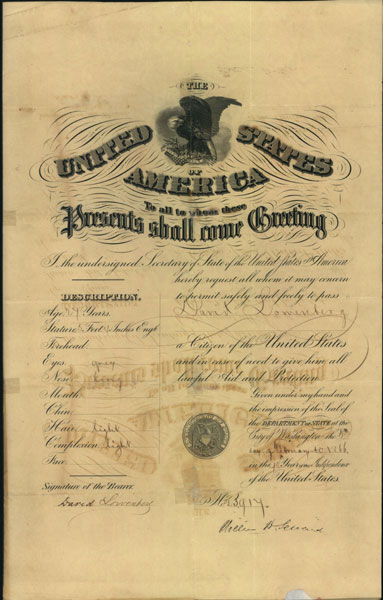 THE
UNITED STATES
OF
AMERICA
To all to whom these
Presents shall come Greeting
I, the undersigned, Secretary of State of the United States of America
hereby request all whom it may concern
to permit safely and freely to pass
David Lowenberg
a Citizen of the United States
and in case of need to give him all
lawful Aid and Protection.
Given under my hand and
the impression of the Seal of
the DEPARTMENT OF STATE at the
City of Washington, the
day of
in the Year of the Independence
of the United States
DESCRIPTION.
Age, Years
Stature, Feet Inches Eng.
Forehead,
Eyes, grey
Nose,
Mouth,
Chin,
Hair, light
Complexion, light
Face,
Signature of the Bearer.
David Lowenberg